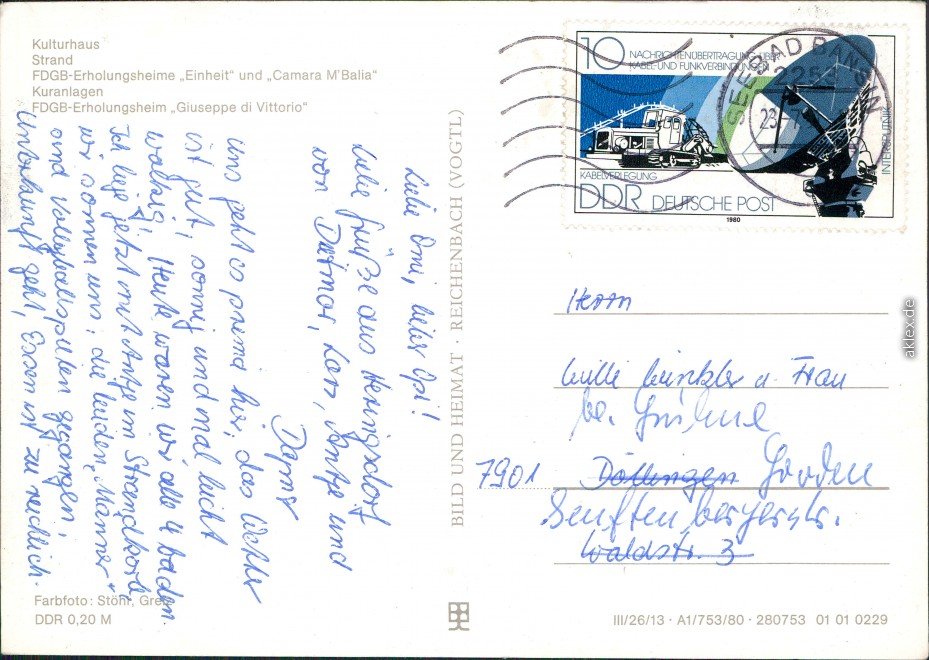 Kulturhaus
Strand
FDGB-Erholungsheime „Einheit" und „Camara M'Balia"
Kuranlagen
FDGB-Erholungsheim „Giuseppe di Vittorio"
Liebe Omi, lieber Opi!
Liebe Grüße aus Heringsdorf
von Dietmar, Antje und
Uns geht es prima hier, das Wetter
ist gut, sonnig und mal leicht
wolkig. Heute waren wir alle 4 baden.
Ich liege jetzt mit Antje im Strandkorb,
wir sonnen uns; die beiden „Männer"
sind Volleyballspielen gegangen.
Unterkunft geht, Essen ist zu reichlich.
BILD UND HEIMAT · REICHENBACH (VOGTL)
Farbfoto: Stöhr,
DDR 0,20 M
10 NACHRICHTENÜBERTRAGUNG ÜBER
KABEL- UND FUNKVERBINDUNGEN
KABELVERLEGUNG
INTERSPUTNIK
DDR DEUTSCHE POST
1980
SEEBAD BANSIN
2255
23
Herrn
u. Frau
bei
7901 Döllingen Gorden
Senftenbergerstr.
Waldstr. 3
III/26/13 · A1/753/80 · 280753 01 01 0229
aklex.de